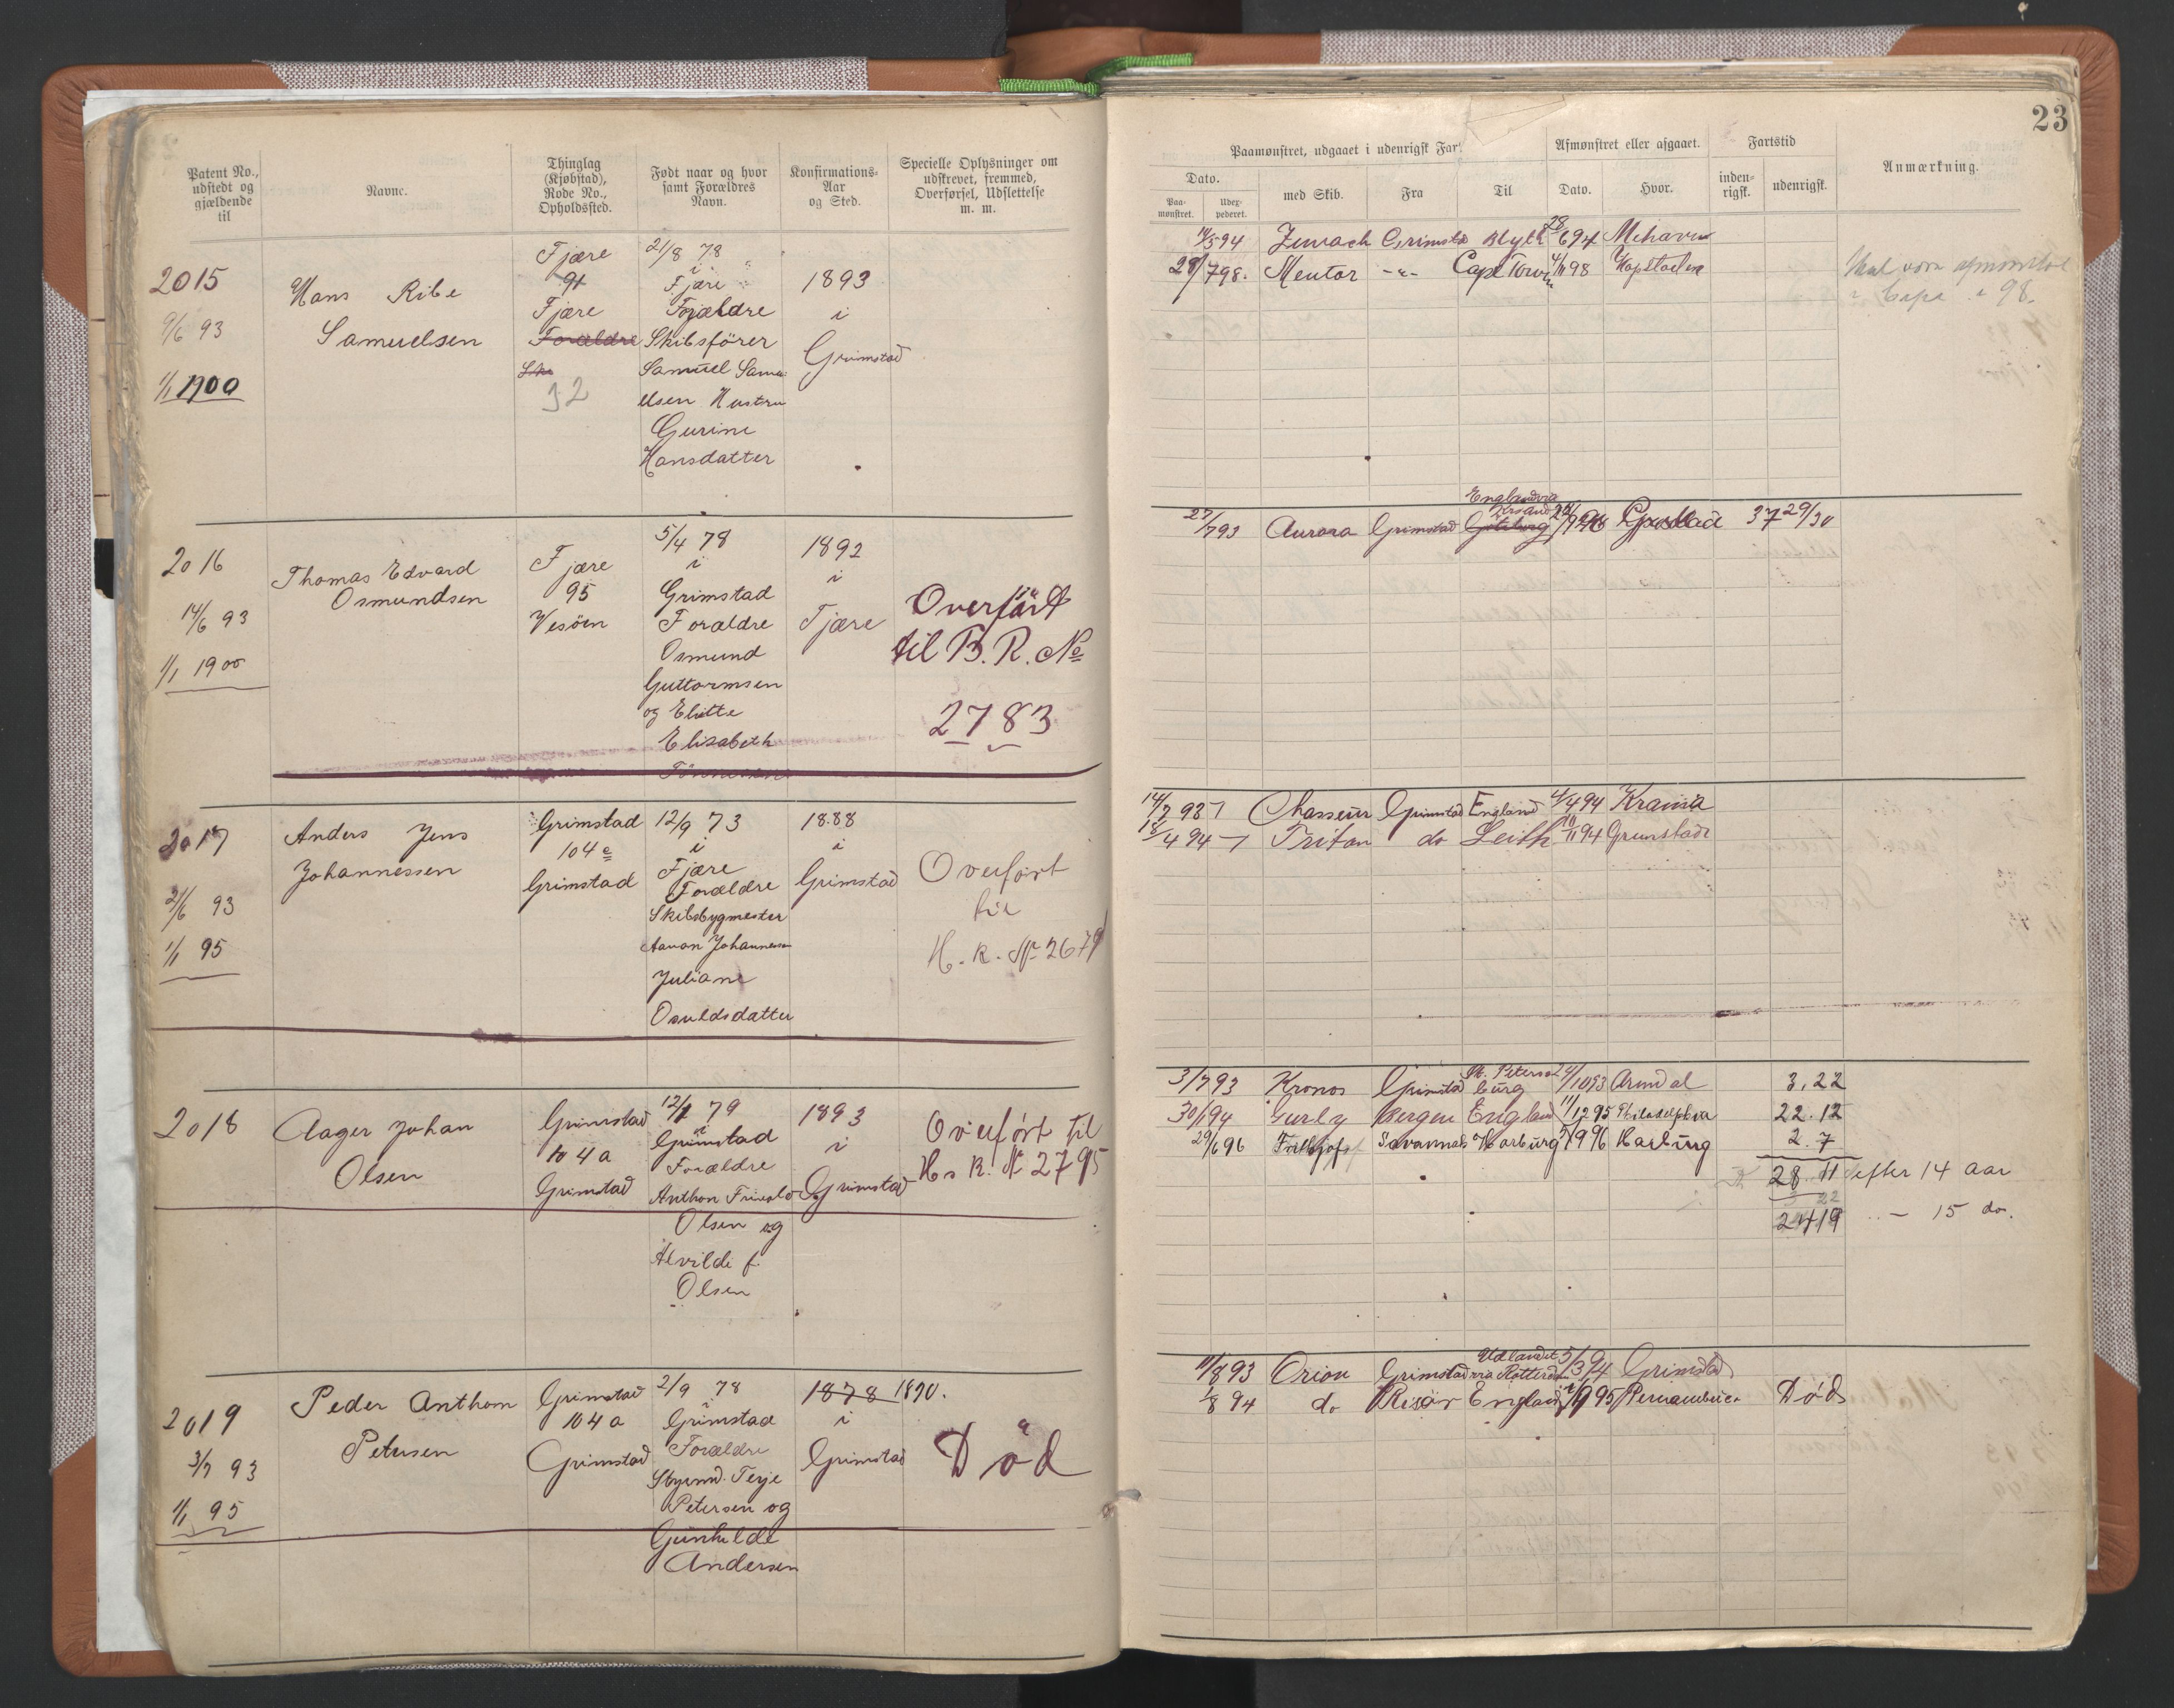 23
Patent No.,
udstedt og
gjældende
til
Navne.
Thinglag
(Kjøbstad),
Rode No.,
Opholdssted.
Født naar og hvor
samt Forældres
Navn.
Konfirmations-
Aar
og Sted.
Specielle Oplysninger om
udskrevet, fremmed,
Overførsel, Udslettelse
m. m.
Paamønstret, udgaaet i udenrigsk Fart.
Afmønstret eller afgaaet.
Fartstid
Anmærkning.
Dato.
Paa-
mønstret.
Udex-
pederet.
med Skib.
Fra
Til
Dato.
Hvor.
inden-
rigsk.
udenrigsk.
2015
9/6 93
1/1 1900
Hans Ribe
Samuelsen
Fjære
91
Fjære
Forældre
32
21/8 78
i
Fjære
Forældre
Skibsfører
Samuel Samu
elsen Hustru
Gurine
Hansdatter
1893
i
Grimstad
14/5 94 Grimstad Blyth 28/6 94
28/7 98. Mentor -"- Cape Town 4/11 98 Kapstaden
i Cape i 98.
2016
14/6 93
1/1 1900
Thomas Edvard
Osmundsen
Fjære
95
Vesöen
5/4 78
i
Grimstad
Forældre
Osmund
Guttormsen
og Elitte
Elisabeth
Tönnesen
1892
i
Fjære
Overført
til B. R. No
2783
27/7 93 Aurora Grimstad Göteborg 37 29/30
2017
21/6 93
1/1 95
Anders Jens
Johannessen
Grimstad
104 e
Grimstad
12/9 73
i
Fjære
Forældre
Skibsbygmester
Aanon Johannessen
Juliane
Osuldsdatter
1888
i
Grimstad
Overført
til
H. R. No 2679
14/7 93 Chasseur Grimstad England 4/4 94 Krania
18/4 94 Triton do Leith 10/11 94 Grimstad
2018
Aager Johan
Olsen
Grimstad
104 a
Grimstad
12/1 79
i
Grimstad
Forældre
Anthon
Olsen og
Alvilde f.
Olsen
1893
i
Grimstad
Overført til
H. R. No 2795
3/7 93 Kronos Grimstad St. Petersburg 24/10 93 Arendal 3.22
30/1 94 Gurly Bergen England 11/12 95 Philadelphia 22.12
29/6 96 Fridtjof Savannah Harburg 5/9 96 Harburg 2.7
28 11 efter 14 Aar
22
24 19 " - 15 do.
2019
3/7 93
1/1 95
Peder Anthon
Petersen
Grimstad
104 a
Grimstad
2/9 78
i
Grimstad
Forældre
Styrmd. Terje
Petersen og
Gunhilde
Andersen
1878 1890.
i
Grimstad
Död
11/8 93 Orion Grimstad Udlandet via Rotterdam 5/3 94 Grimstad
1/8 94 do Risör England 95 Pernambuco Död